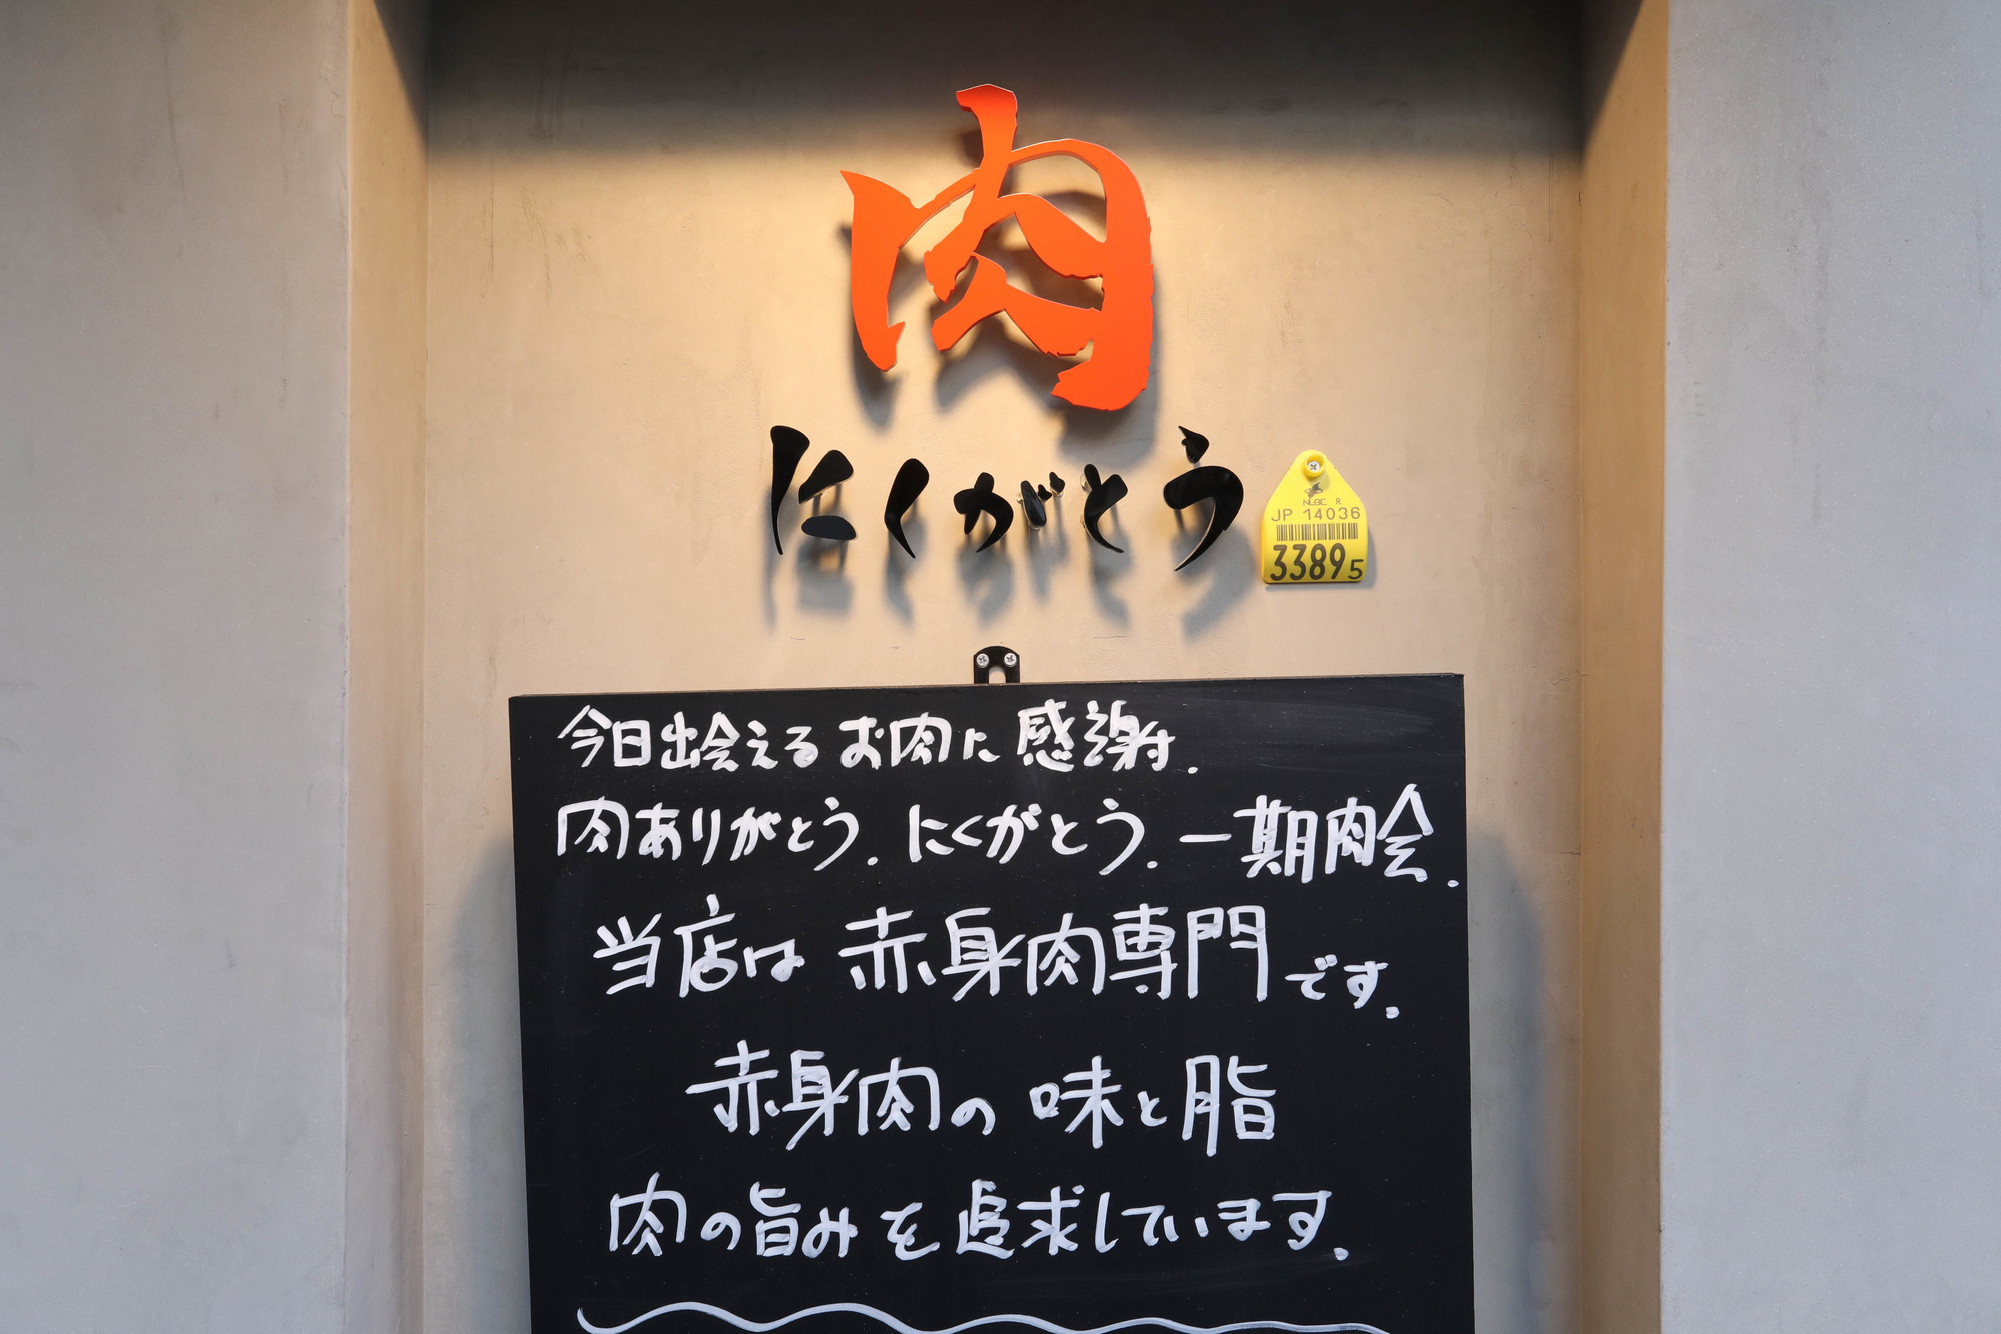 肉
にくがとう
NLBC R
JP 14036
33895
今日出会えるお肉に感謝.
肉ありがとう.にくがとう.一期肉会.
当店は赤身肉専門です.
赤身肉の味と脂
肉の旨みを追求しています.